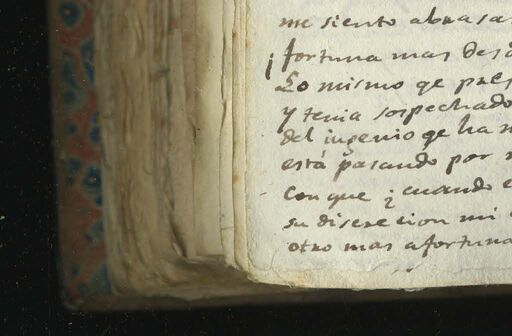 me siento abrasa
¡fortuna mas des
Lo mismo qe pres
y tenia sospechado
del ingenio qe ha
está pasando por
con que ¿cuando
su discrecion mi
otro mas afortuna